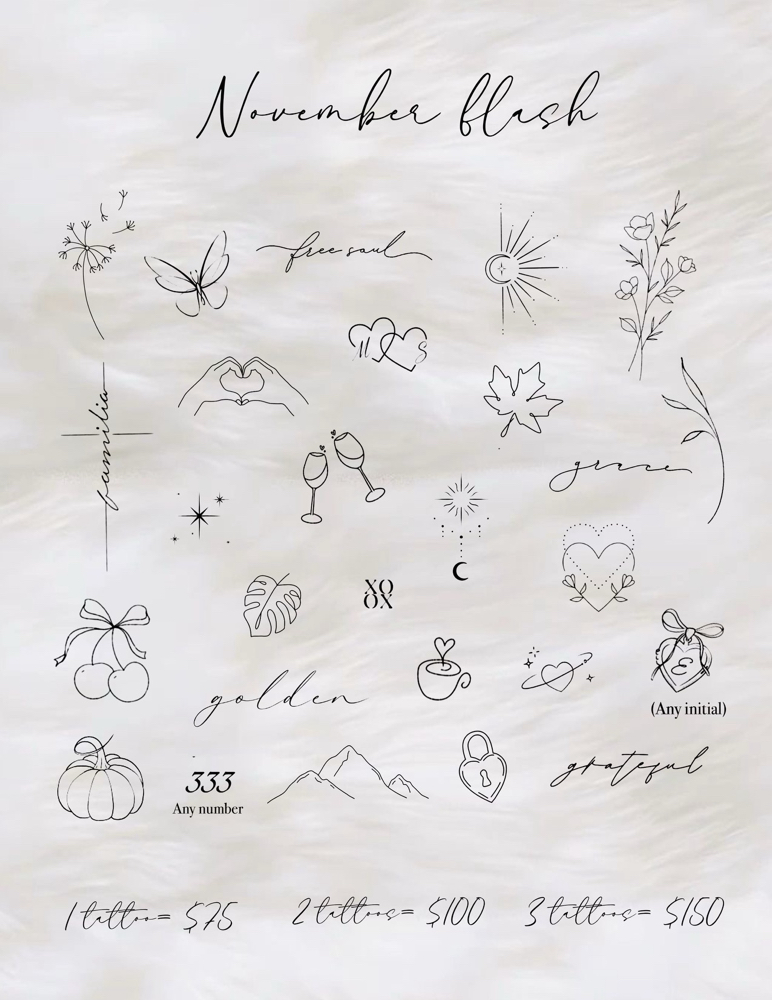 November flash
free soul
M S
familia
grace
XO
OX
E
(Any initial)
golden
333
Any number
grateful
1 tattoo= $75 2 tattoos= $100 3 tattoos= $150